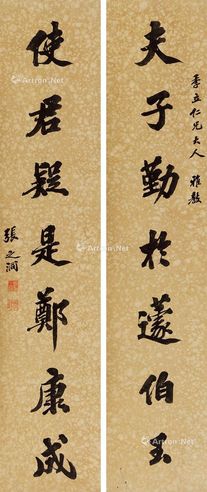 夫子勤於蘧伯玉
季立仁兄大人 雅教
使君疑是鄭康成
張之洞
Artron.Net